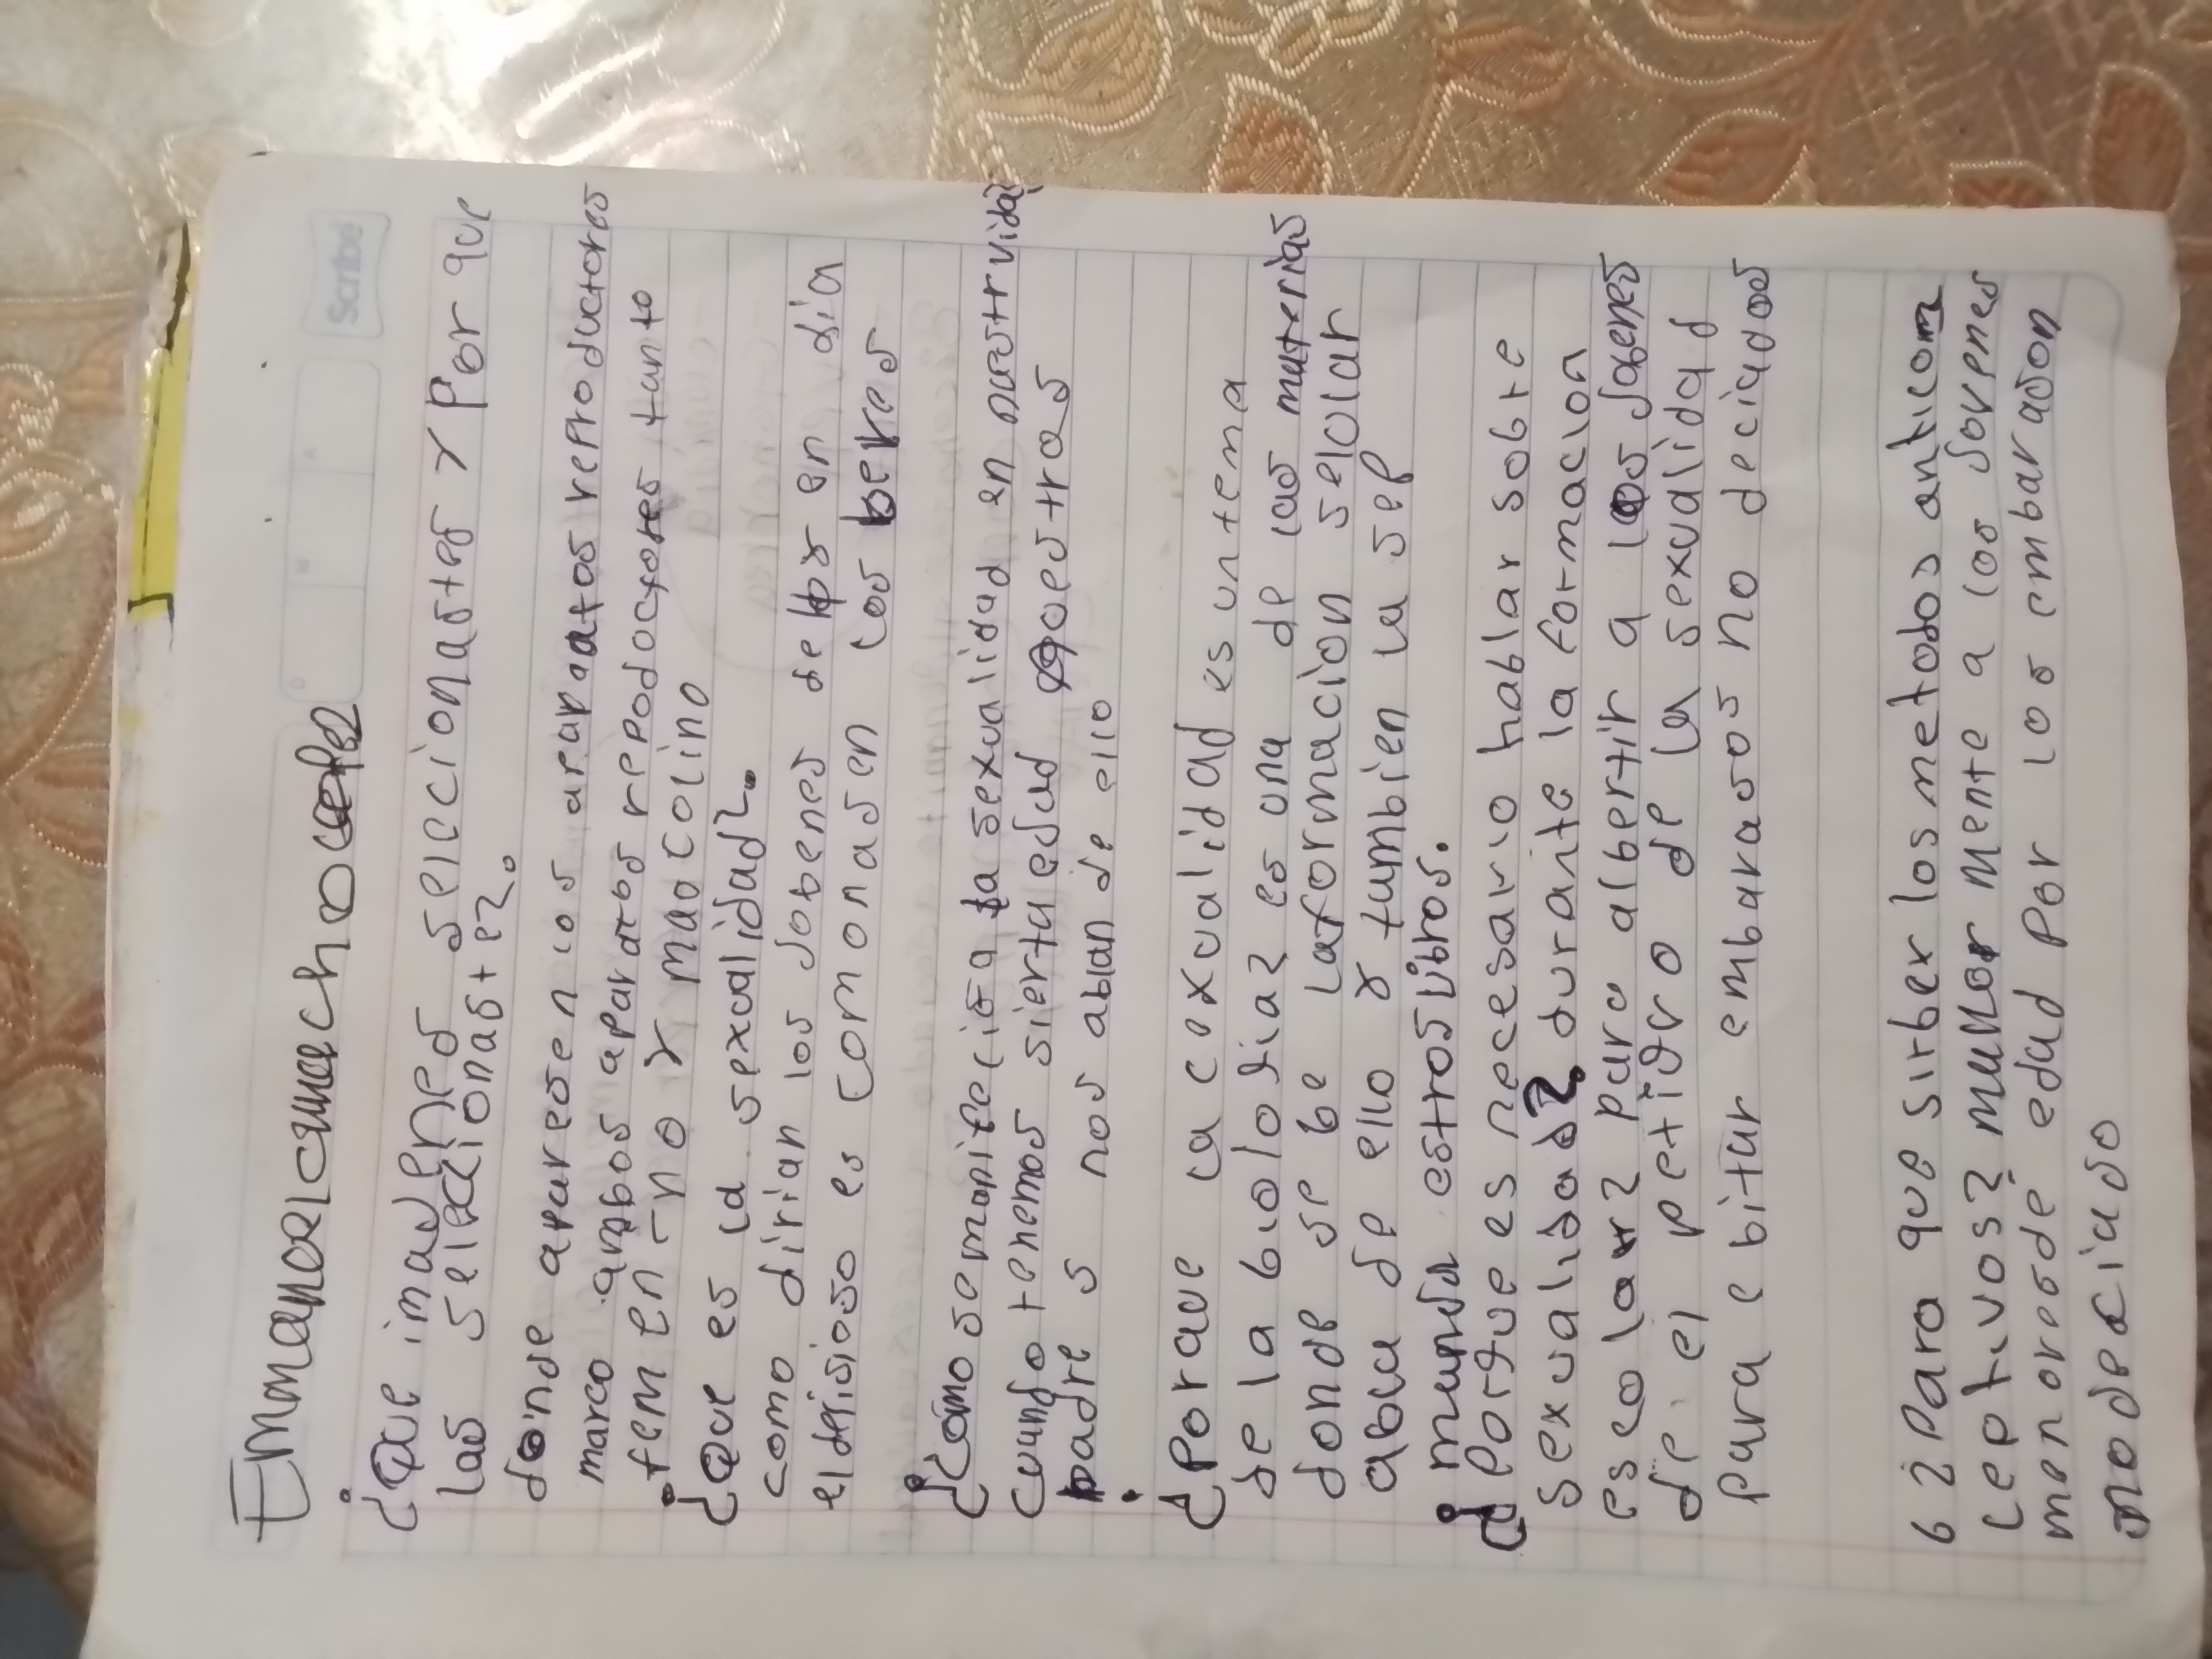 Scribe
¿Que imajenes selecionastes y Por que
las selecionastez?
donde aparesen los aparaatos reproductores
marco ambos aparatos repoductores tanto
femenino y mascolino
¿Que es la sexualidad?
como dirian los jobenes de hoy en dia
el delisioso es comonasen los beves
¿Cómo se manifiecista la sexualidad en nuestruida?
cuando tenemos sierta edad nuestros
padres nos ablan de ello
¿Porque la cexualidad es untema
de la biolojia? es una de las materias
donde se be laformacion selolar
abla de ello y tambien la sep
manda estroslibros.
¿Porque es necesario hablar sobre
sexualidad? durante la formacion
escolar? para albertir a los jobenes
de el peligro de la sexualidad
para ebitar embarasos no deciados
6 ¿Para que sirbex los metodos anticom
ceptivos? mallormente a los jovenes
menoresde edad por los embarason
nodeciado